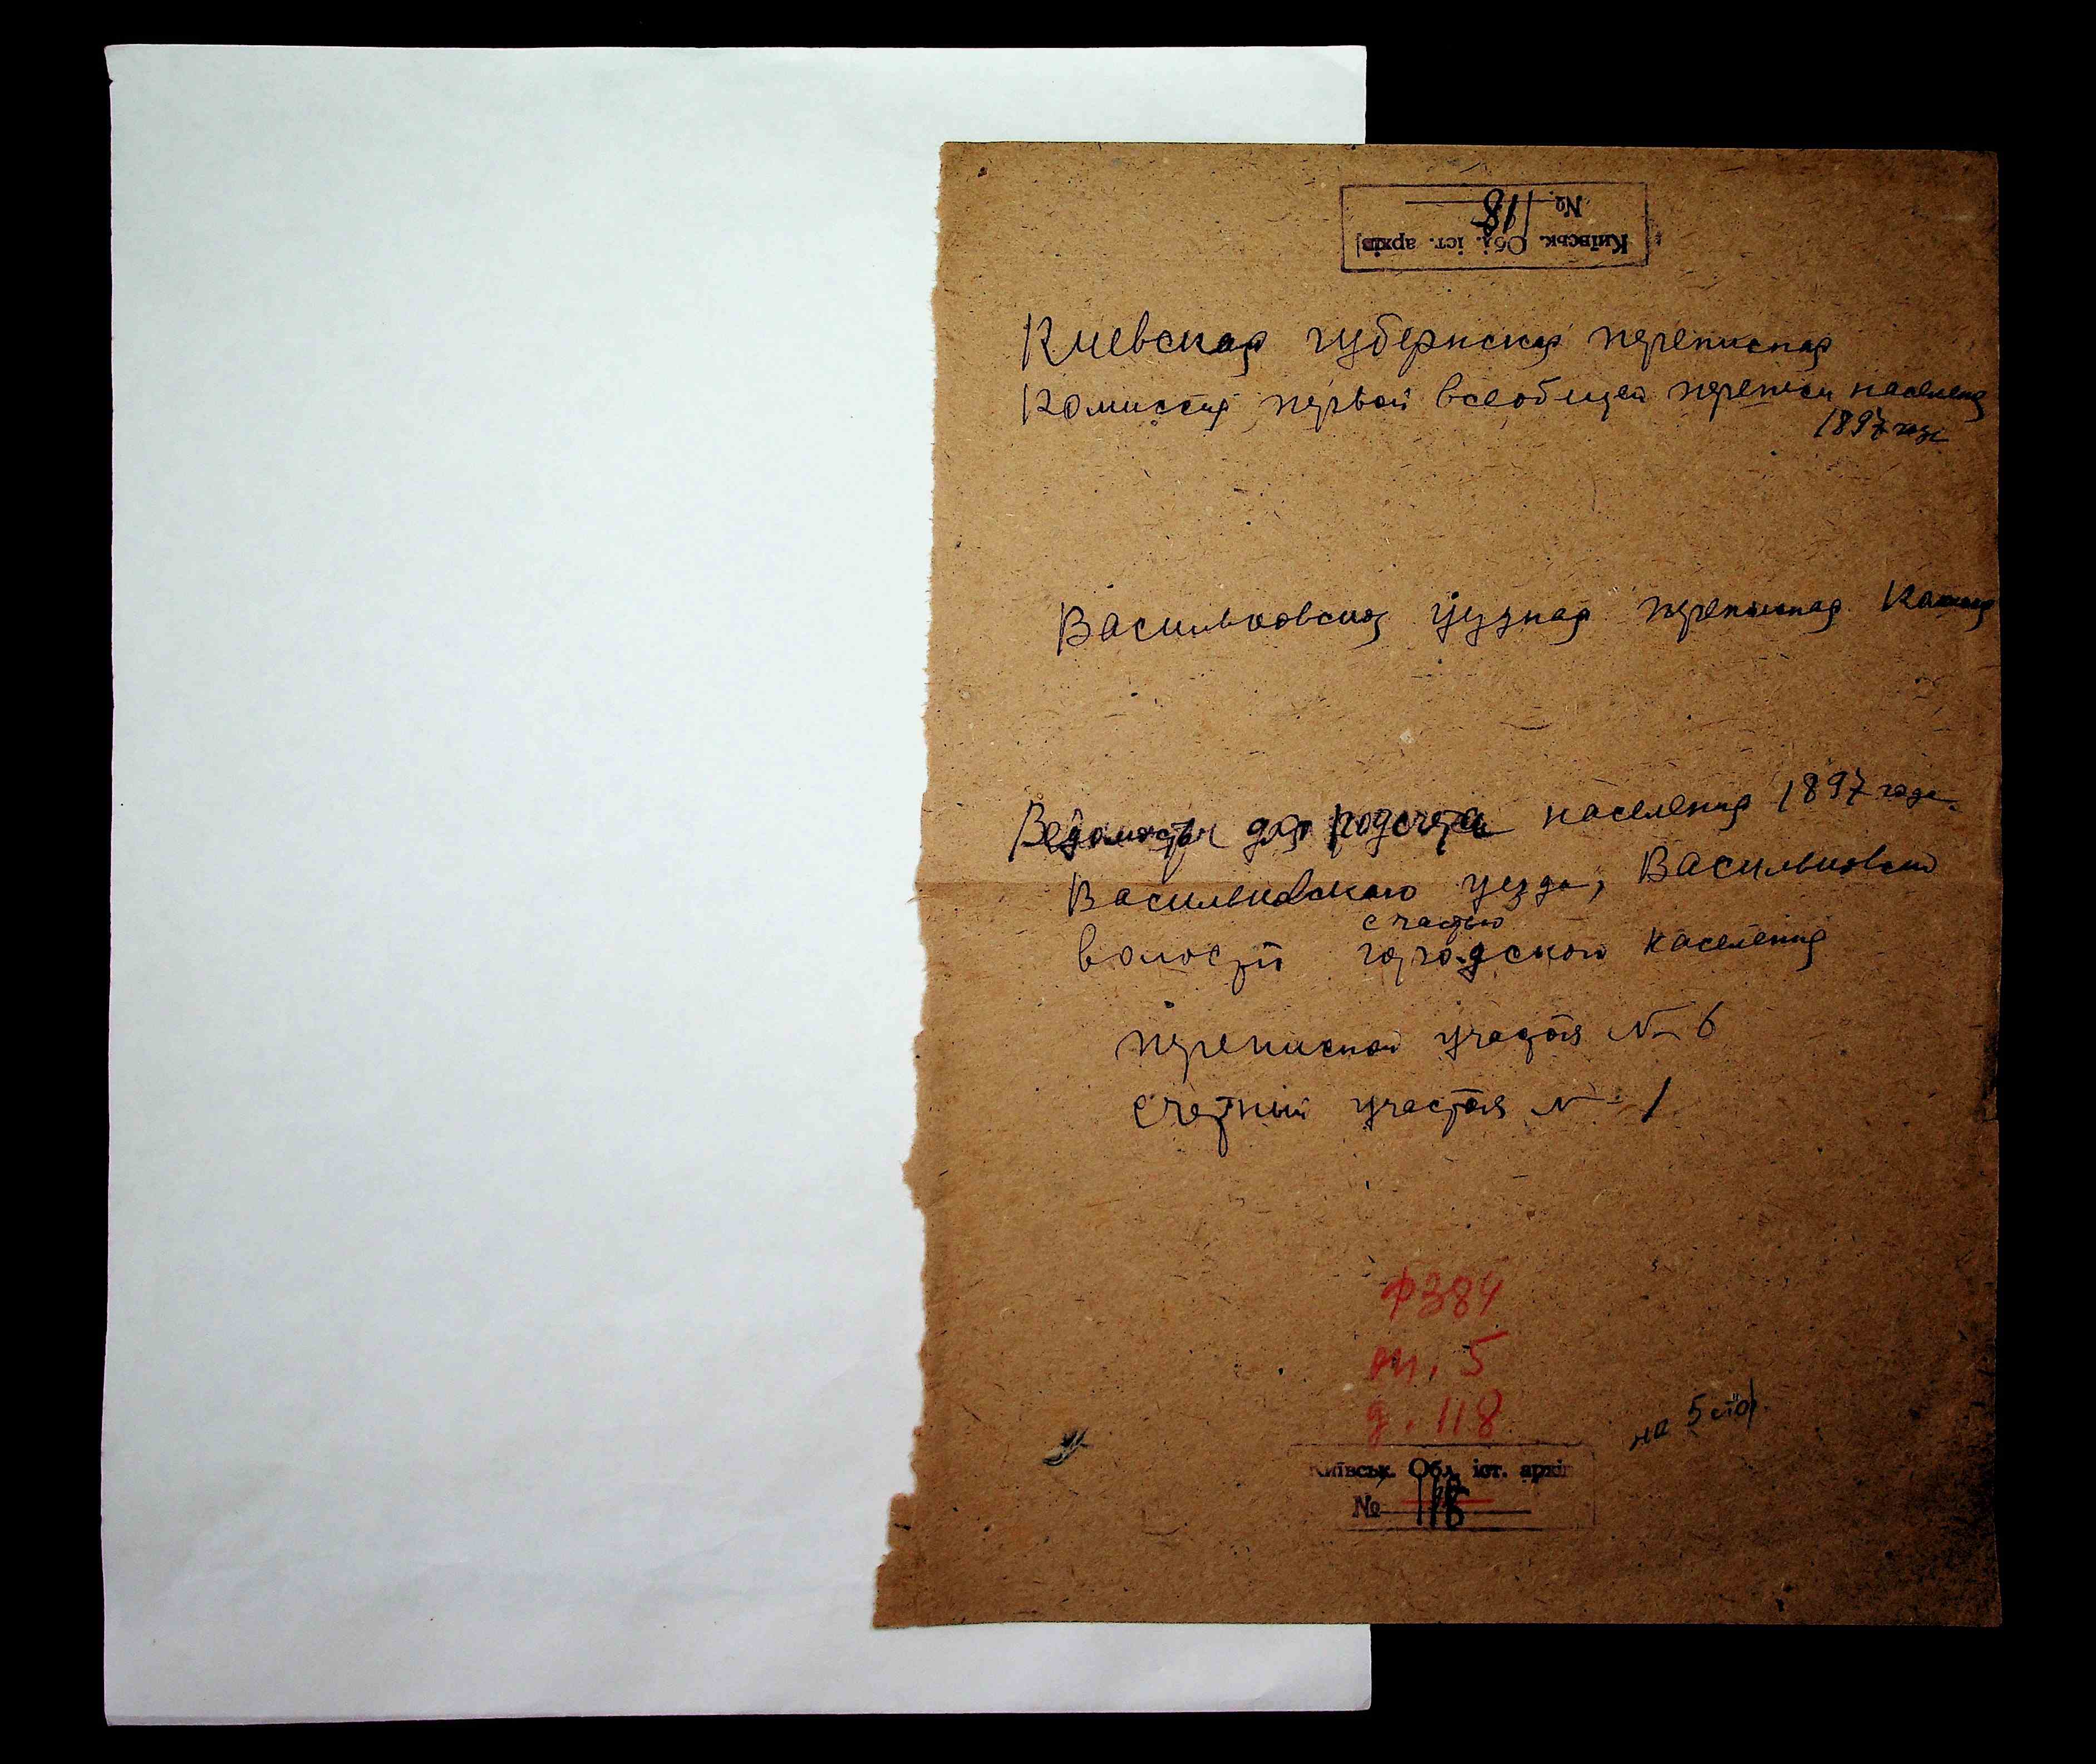 Київськ. Обл. іст. архів
№ 118
Киевская губернская переписная
Комиссия первой всеобщей переписи населения
1897 года
Васильковская уездная переписная
Ведомости для подсчета населения 1897 года
Васильковского уезда, Васильковской
с частью
волости городского населения
переписной участок № 6
счетный участок № 1
ф 384
оп. 5
д. 118
на 5 стор.
Київськ. Обл. іст. архів
№ 118